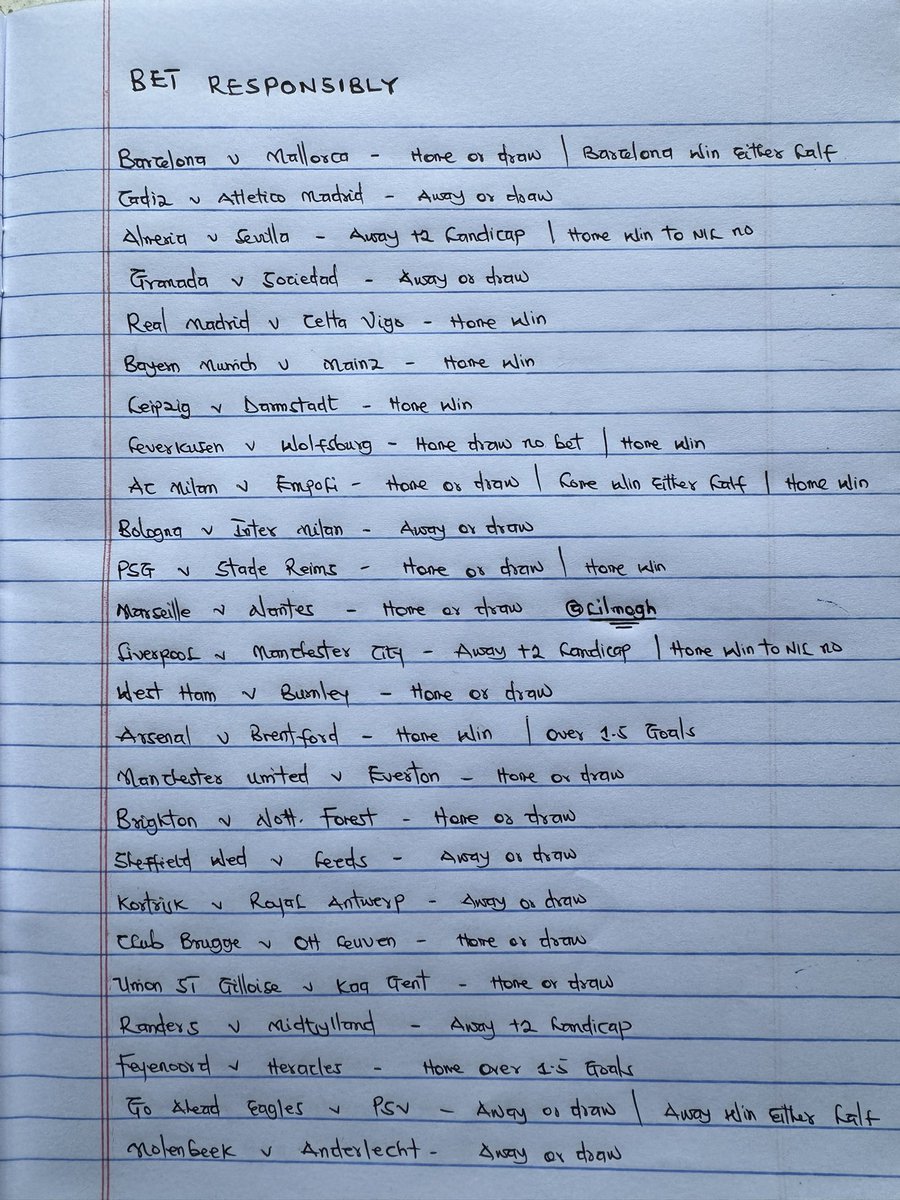 BET RESPONSIBLY
Barcelona v Mallorca - Home or draw | Barcelona Win Either Half
Cadiz v Atletico Madrid - Away or draw
Almeria v Sevilla - Away +2 Handicap | Home Win to NIL no
Granada v Sociedad - Away or draw
Real Madrid v Celta Vigo - Home Win
Bayern Munich v Mainz - Home Win
Leipzig v Darmstadt - Home Win
Leverkusen v Wolfsburg - Home draw no bet | Home Win
Ac Milan v Empoli - Home or draw | Home Win Either Half | Home Win
Bologna v Inter Milan - Away or draw
PSG v Stade Reims - Home or draw | Home Win
Marseille v Nantes - Home or draw @Lilmogh
Liverpool v Manchester City - Away +2 Handicap | Home Win to NIL no
West Ham v Burnley - Home or draw
Arsenal v Brentford - Home Win | Over 1.5 Goals
Manchester United v Everton - Home or draw
Brighton v Nott. Forest - Home or draw
Sheffield Wed v Leeds - Away or draw
Kortrijk v Royal Antwerp - Away or draw
Club Brugge v OH Leuven - Home or draw
Union ST Gilloise v Kaa Gent - Home or draw
Randers v Midtjylland - Away +2 Handicap
Feyenoord v Heracles - Home Over 1.5 Goals
Go Ahead Eagles v PSV - Away or draw | Away Win Either Half
Molenbeek v Anderlecht - Away or draw